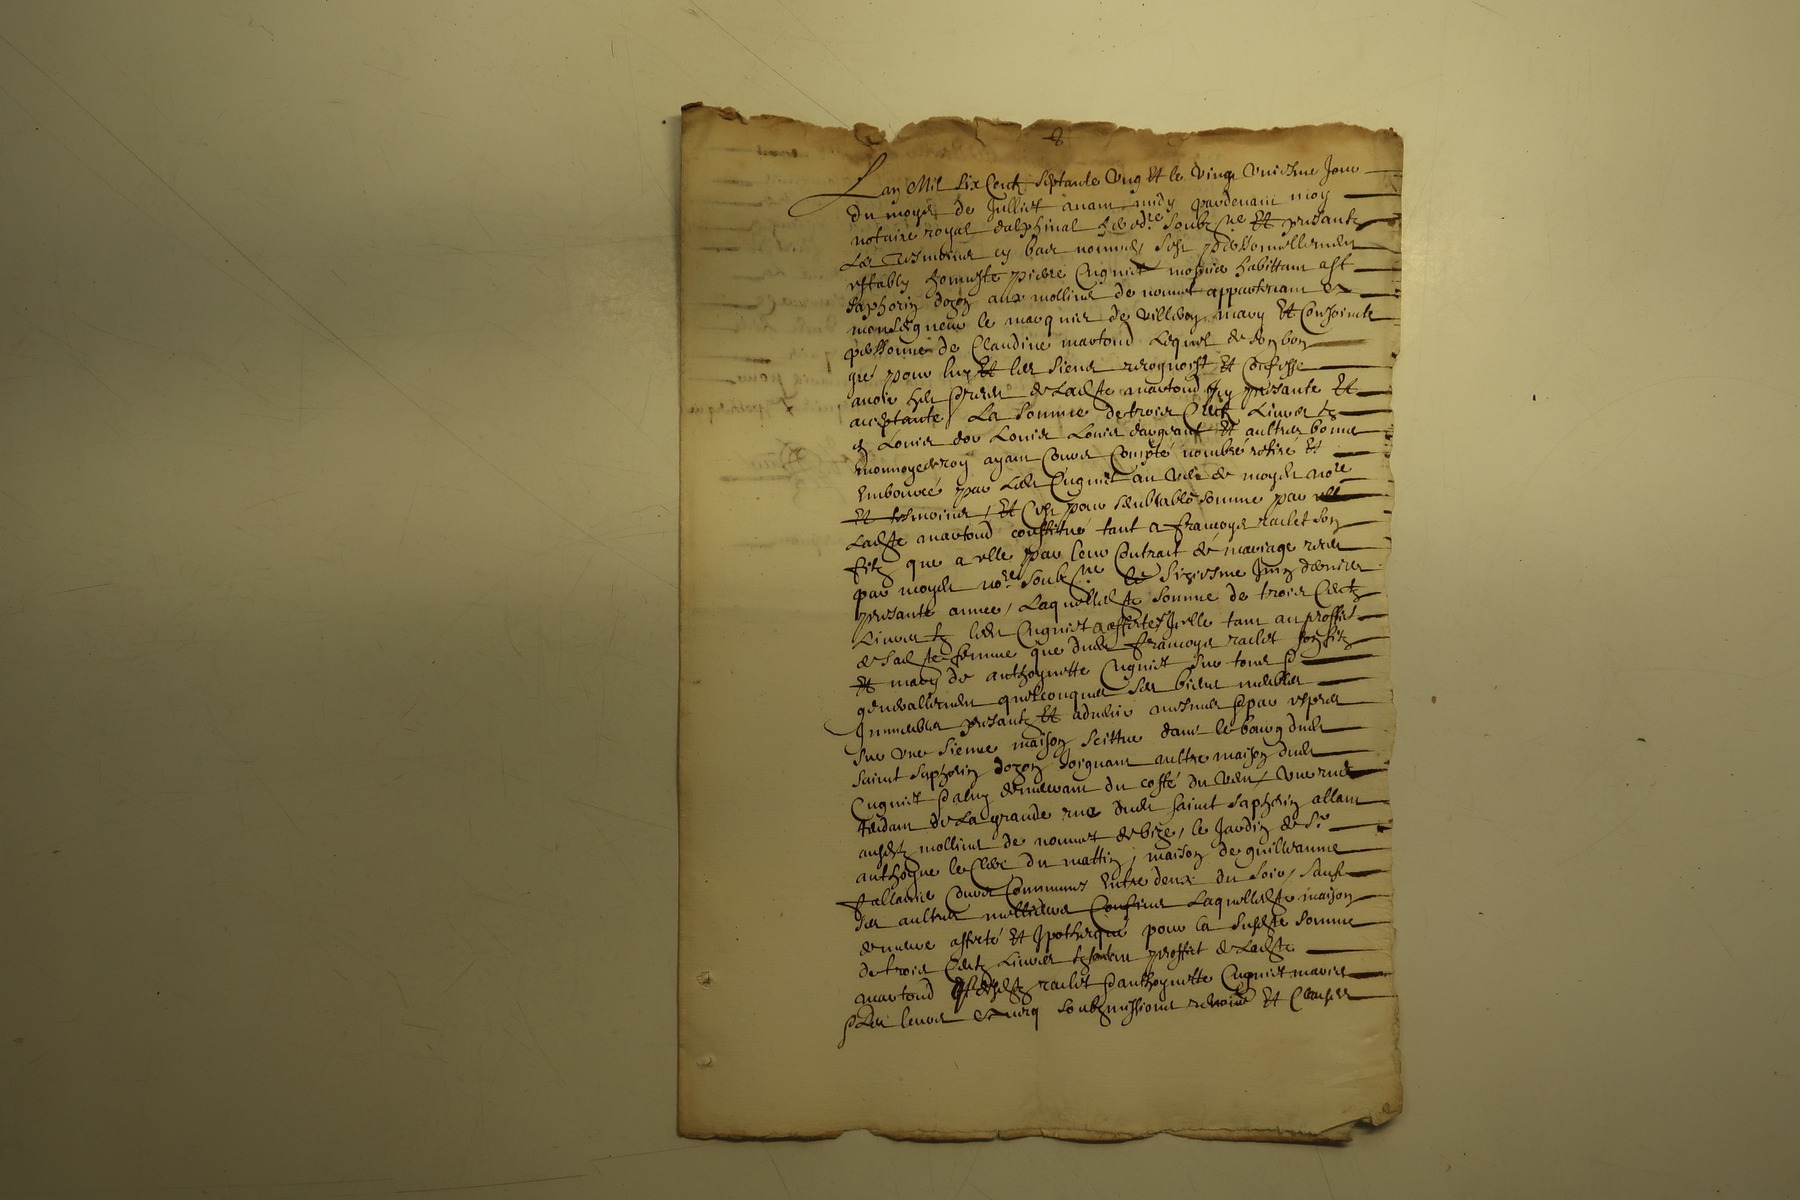 8
Lan Mil Six Centz Septante Ung Et le vingt uniesme Jour
du moys de Julliet avant midy pardevant moy
notaire royal dalphinal soubzne Et presantz
Les tesmoins en bas nommes sest personnellement
estably honneste piere Cugniet mosnier habittant a St
Saphorin dozon aux mollins de nouvet appartenant a
monseigneur le marquis de villeroy mary Et Conjointe
personne de Claudine martoud Lequel de son bon
gre pour luy Et les siens recognoist Et Confesse
avoir heu de Ladte martoud Icy presante Et
acceptante La somme de trois Centz Livres tz
en Louis dor Louis Louis dargeant Et aultres bonne
monnoye de roy ayant Cours Compté nombré retiré Et
Embourcé par Led Cugniet au veu de moyd nore
Et tesmoins, Et Cest pour semblable somme par
Ladte martoud constitué tant a françoys raclet son
filz que a elle par leur Contrait de mariage receu
par moyd nore soubzne le Sixiesme Juin dernier
presante annee, Laquelle dte somme de trois Centz
Livres tz led Cugniet a affecte Icelle tant au proffict
de sadte femme que dud françoys raclet son filz
Et mary de anthoynette Cugniet sur tous &
generallement quelconques ses biens meubles
Immeubles presantz Et advenir mesmes & par expres
sur une sienne maison scittue dans le bourg dud
saint saphorin dozon Joignant aultre maison dud
Cugniet & a luy demeurant du costé du vent, une rue
tendant de La grande rue dud saint saphorin allant
ausdz mollins de nouvet de bize, le Jardin de Sr
anthoyne le Clerc du mattin, maison de guilleaume
Jallamis Cours Communs Entre deux du soir, sauf
ses aultres meillieurs Confins Laquelle dte maison
demeure affecté Et Ipothequé pour la susdte somme
de trois Centz Livres tz au proffict de Ladte
martoud & desdz raclet & anthoynette Cugniet mariés
& Les leurs soubzmissions Et Clauses